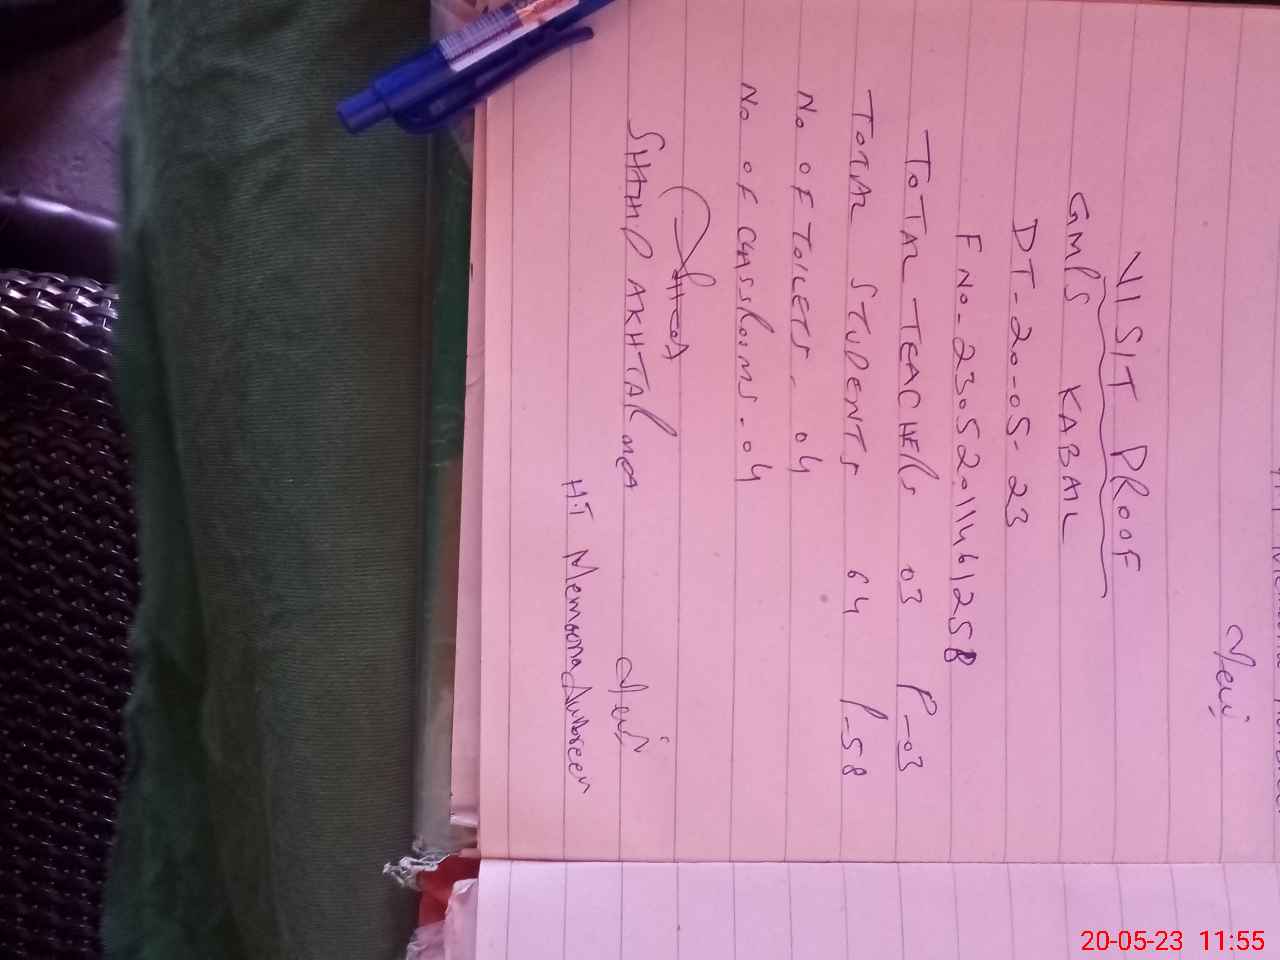 VISIT PROOF
GMPS KABAL
DT-20-05-23
F No-23052011461258
TOTAL TEACHERS 03 P-03
TOTAL STUDENTS 64 P-58
No OF TOILETS- 04
No OF CLASSROOMS-04
SHAHID AKHTAR MEA
H.T Memoona Ambreen
20-05-23 11:55